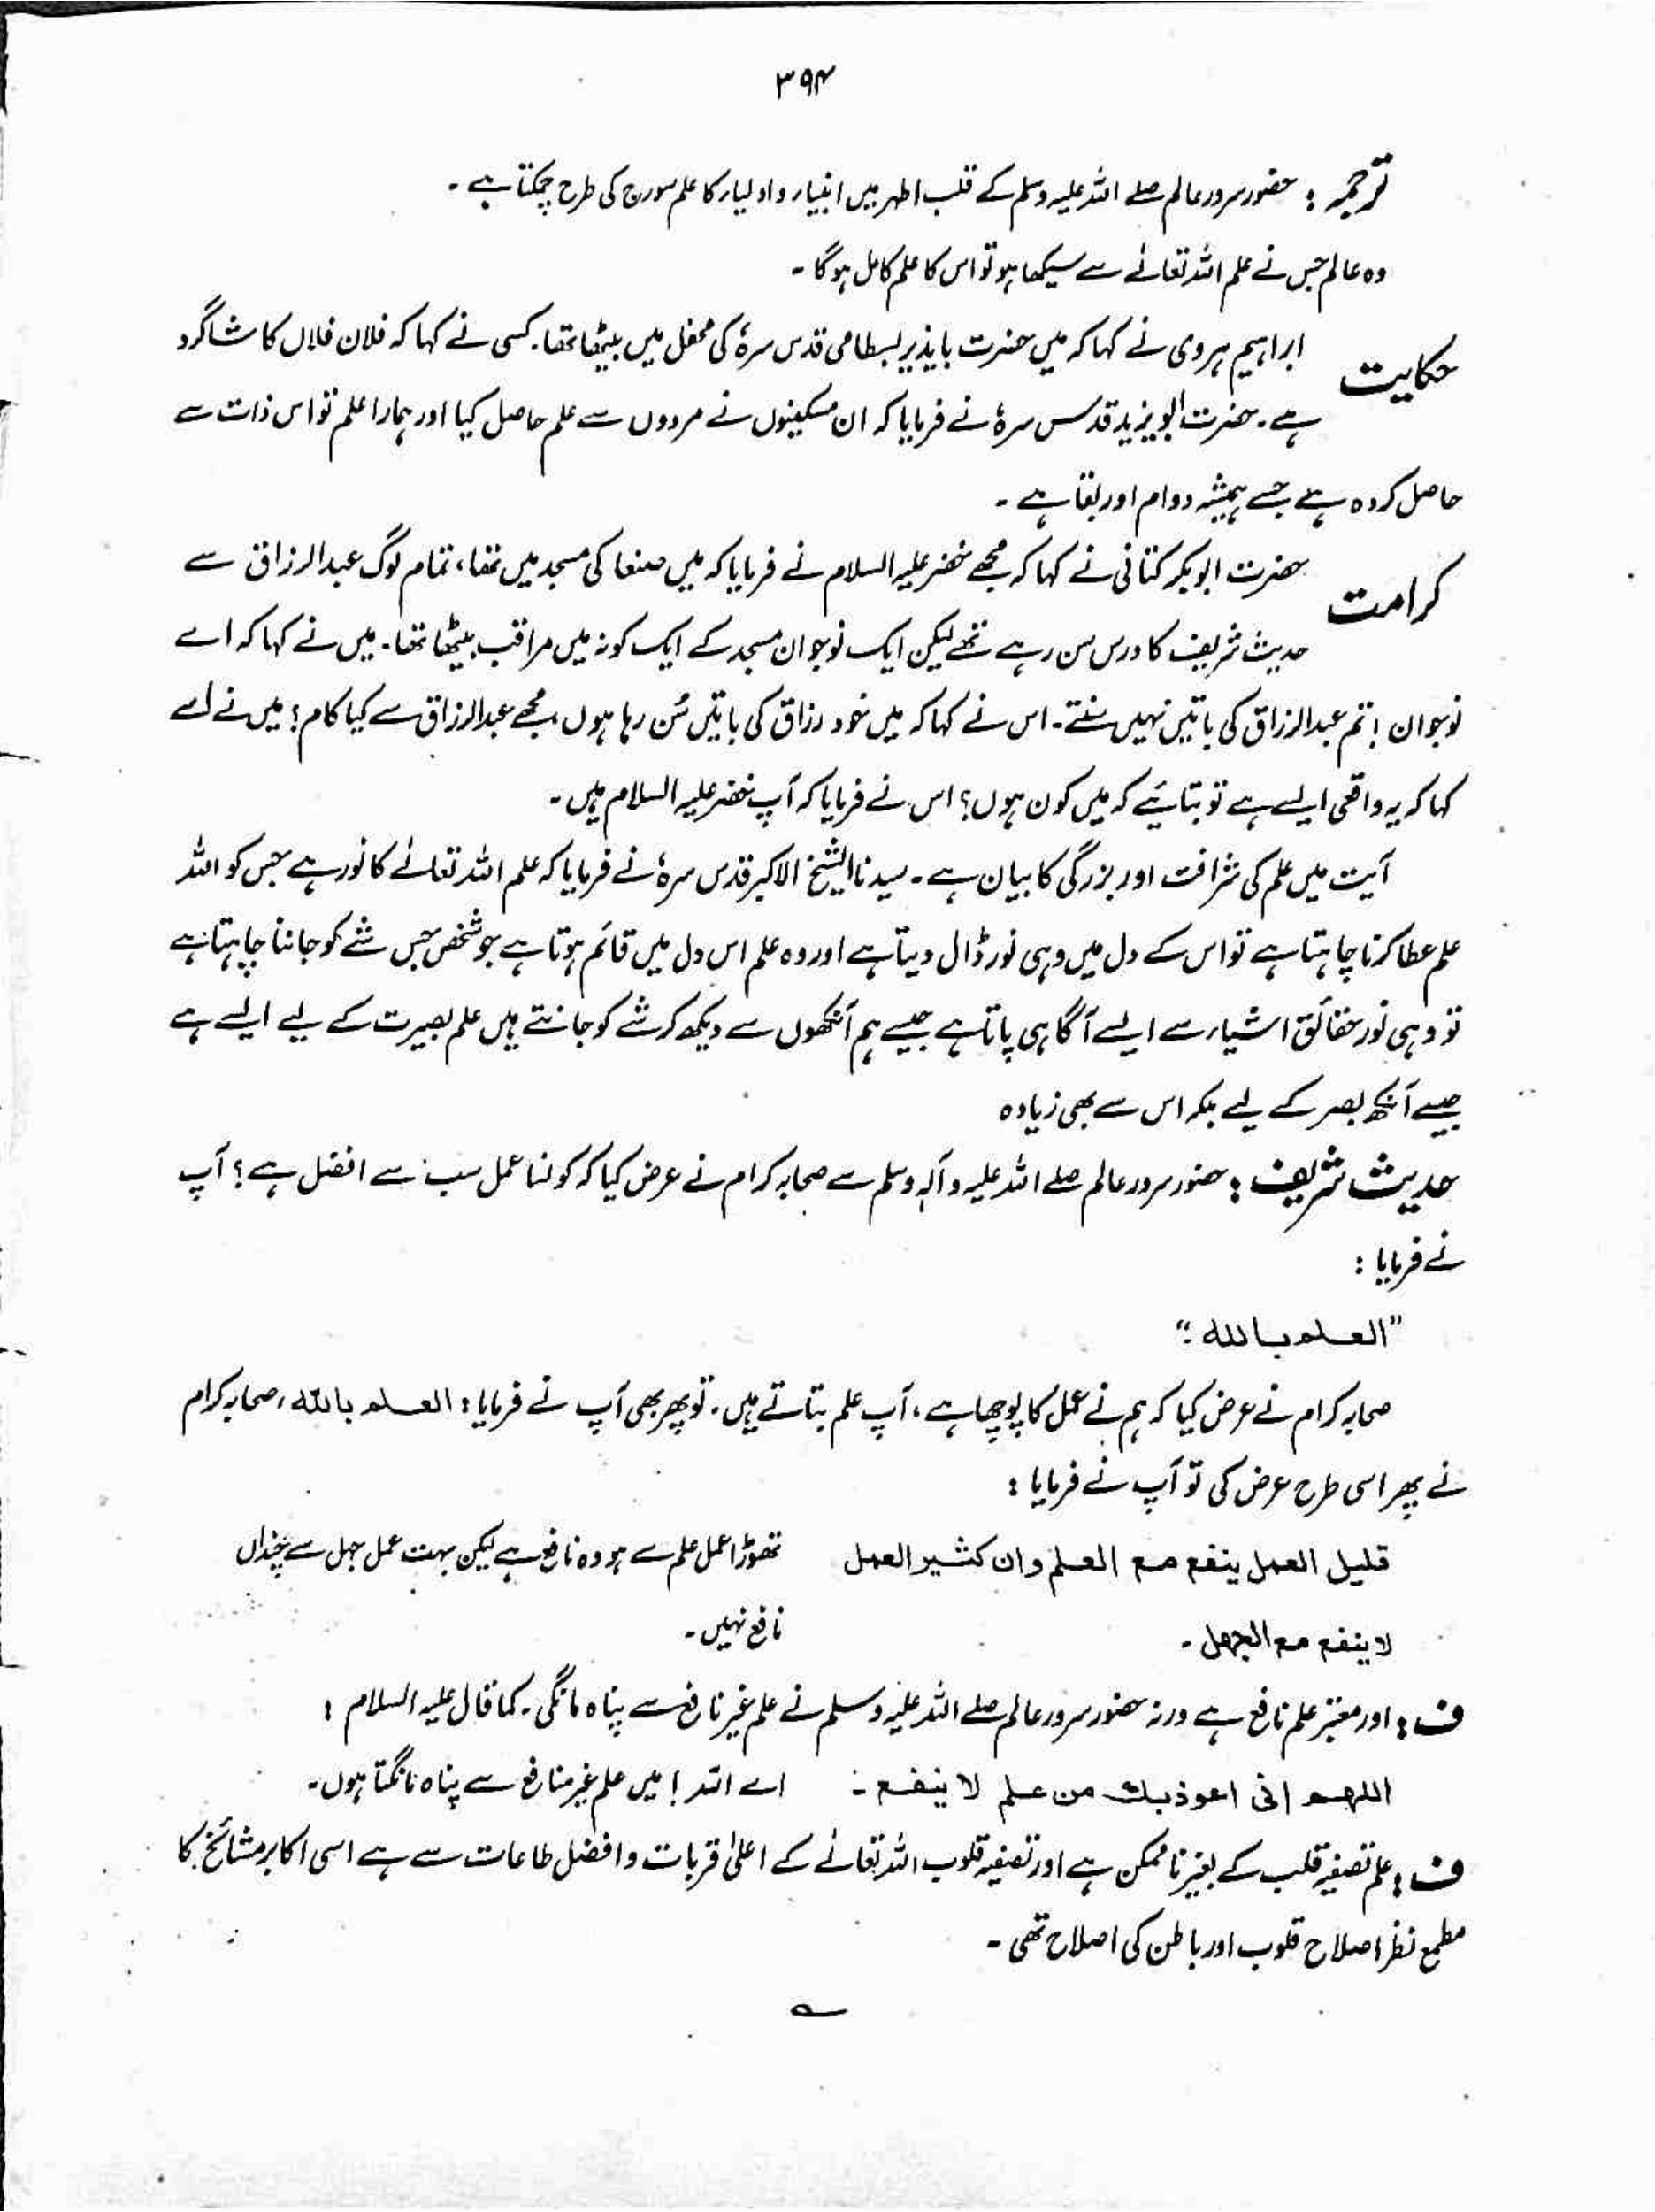 ۳۹۴
ترجمہ : حضور سرور عالم صلے اللہ علیہ وسلم کے قلب اطہر میں انبیاء و اولیاء کا علم سورج کی طرح چمکتا ہے ۔
وہ عالم جس نے علم اللہ تعالےٰ سے سیکھا ہو تو اس کا علم کامل ہوگا ۔
حکایت ابراہیم ہروی نے کہا کہ میں حضرت بایذیر بسطامی قدس سرہٗ کی محفل میں بیٹھا تھا۔ کسی نے کہا کہ فلان فلاں کا شاگرد
ہے ۔ حضرت ابویزید قدس سرہٗ نے فرمایا کہ ان مسکینوں نے مردوں سے علم حاصل کیا اور ہمارا علم تو اس ذات سے
حاصل کردہ ہے جسے ہمیشہ دوام اور بقا ہے ۔
کرامت حضرت ابوبکر کتانی نے کہا کہ مجھے خضر علیہ السلام نے فرمایا کہ میں صنعا کی مسجد میں تھا، تمام لوگ عبدالرزاق سے
حدیث شریف کا درس سن رہے تھے لیکن ایک نوجوان مسجد کے ایک کونہ میں مراقب بیٹھا تھا۔ میں نے کہا کہ اے
نوجوان ! تم عبدالرزاق کی باتیں نہیں سنتے۔ اس نے کہا کہ میں خود رزاق کی باتیں سُن رہا ہوں، مجھے عبدالرزاق سے کیا کام ؟ میں نے اسے
کہا کہ یہ واقعی ایسے ہے تو بتائیے کہ میں کون ہوں؟ اس نے فرمایا کہ آپ خضر علیہ السلام ہیں ۔
آیت میں علم کی شرافت اور بزرگی کا بیان ہے ۔ سیدنا الشیخ الاکبر قدس سرہٗ نے فرمایا کہ علم اللہ تعالےٰ کا نور ہے جس کو اللہ
علم عطا کرنا چاہتا ہے تو اس کے دل میں وہی نور ڈال دیتا ہے اور وہ علم اس دل میں قائم ہوتا ہے جو شخص جس شے کو جاننا چاہتا ہے
تو وہی نور حقائق اشیاء سے ایسے آگاہی پاتا ہے جیسے ہم آنکھوں سے دیکھ کر شے کو جانتے ہیں علم بصیرت کے لیے ایسے ہے
جیسے آنکھ بصر کے لیے بلکہ اس سے بھی زیادہ
حدیث شریف : حضور سرور عالم صلے اللہ علیہ وآلہٖ وسلم سے صحابہ کرام نے عرض کیا کہ کونسا عمل سب سے افضل ہے ؟ آپ
نے فرمایا :
”العلم باللہ ۔“
صحابہ کرام نے عرض کیا کہ ہم نے عمل کا پوچھا ہے ، آپ علم بتاتے ہیں ۔ تو پھر بھی آپ نے فرمایا : العلم باللہ ، صحابہ کرام
نے پھر اسی طرح عرض کی تو آپ نے فرمایا :
قلیل العمل ینفع مع العلم وان کثیر العمل تھوڑا عمل علم سے ہو وہ نافع ہے لیکن بہت عمل جہل سے چنداں
لا ینفع مع الجہل ۔ نافع نہیں ۔
ف : اور معتبر علم نافع ہے ورنہ حضور سرور عالم صلے اللہ علیہ وسلم نے علم غیر نافع سے پناہ مانگی ۔ کما قال علیہ السلام :
اللھم انی اعوذ بک من علم لا ینفع ۔ اے اللہ ! میں علم غیر منافع سے پناہ مانگتا ہوں ۔
ف : علم تصفیہ قلب کے بغیر ناممکن ہے اور تصفیہ قلوب اللہ تعالےٰ کے اعلیٰ قربات و افضل طاعات سے ہے اسی اکابر مشائخ کا
مطمع نظر اصلاح قلوب اور باطن کی اصلاح تھی ۔
ے